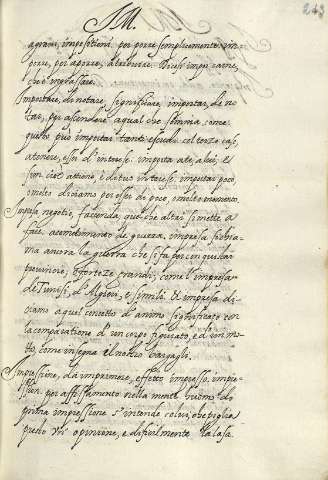 IM.
243
agravi, impositioni per porre semplicemente im
porre, per aporre, atribuire. Dicesi impor carne,
che è ingrassare.
Importare, denotare, significare, importar, de no
tar, per ascendere a qual che somma, come
questo può importar tanti scudi col terzo caso
atonere, essere d' interesse importa ale, a lui, e
simil attione, e debito interesse importar poco
molto diciamo per esser di poco, o molto momento
Impresa negotio, facienda, quel che altri si mette a
fare. acendimento de guerra, impresa si chia
ma ancora la guerra che si fa per conquistar
provincie, o fortezze grandi, come l'impresa
de Tunisi, d' Algieri, o simili. E impresa di
ciamo a quel concetto di animo significato con
la comparatione d' un corpo figurato ed un mo
tto, come insegna el nostro Bargagli.
Impressione, da imprimere, effetto impresso, impre
ssion per affissamento nella mente huomo di
prima impressione s' intende colui, che piglia
presto un' opinione, e dificilmente la lasa.